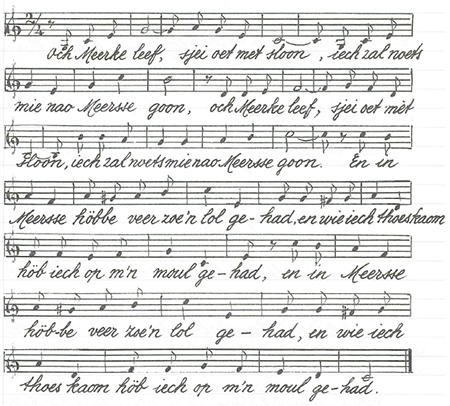 och Meerke leef, sjei oet met sloon, iech zal noets
mie nao Meersse goon, och Meerke leef, sjei oet mèt
sloon, iech zal noets mie nao Meersse goon. En in
Meersse höbbe veer zoe'n lol ge-had, en wie iech thoes kaom
höb iech op m'n moul ge-had, en in Meersse
höb-be veer zoe'n lol ge-had, en wie iech
thoes kaom höb iech op m'n moul ge-had.